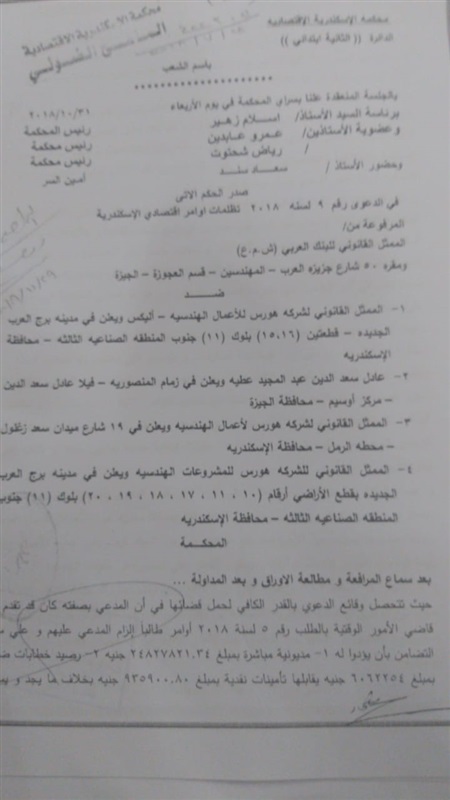 محكمة الإسكندرية الاقتصادية
محكمة الإسكندرية الاقتصاديه
الدائرة (( الثانية ابتدائي ))
باسم الشعب
********************
بالجلسة المنعقدة علنا بسراي المحكمة في يوم الأربعاء ٢٠١٨/١٠/٣١
برئاسة السيد الأستاذ/ اسلام زهير رئيس المحكمة
وعضوية الأستاذين/ عمرو عابدين رئيس محكمة
/ رياض شحتوت رئيس محكمة
وحضور الأستاذ / سعاد سند أمين السر
صدر الحكم الاتى
في الدعوى رقم ٩ لسنه ٢٠١٨ تظلمات اوامر اقتصادي الإسكندرية
المرفوعة من/
الممثل القانوني للبنك العربي (ش.م.ع)
ومقره ٥٠ شارع جزيره العرب – المهندسين – قسم العجوزة – الجيزة
ضــد
١- الممثل القانوني لشركه هورس للأعمال الهندسيه – أليكس ويعلن في مدينه برج العرب
الجديده – قطعتين (١٥،١٦) بلوك (١١) جنوب المنطقه الصناعيه الثالثه – محافظة
الإسكندريه
٢- عادل سعد الدين عبد المجيد عطيه ويعلن في زمام المنصوريه – فيلا عادل سعد الدين
– مركز أوسيم – محافظة الجيزة
٣- الممثل القانوني لشركه هورس لأعمال الهندسيه ويعلن في ١٩ شارع ميدان سعد زغلول
– محطه الرمل – محافظة الإسكندريه
٤- الممثل القانوني للشركه هورس للمشروعات الهندسيه ويعلن في مدينه برج العرب
الجديده بقطع الأراضي أرقام (١٠ ، ١١ ، ١٧ ، ١٨ ، ١٩ ، ٢٠) بلوك (١١) جنوب
المنطقه الصناعيه الثالثه – محافظة الإسكندريه
المحكمــة
بعد سماع المرافعة و مطالعة الاوراق و بعد المداولة ...
حيث تتحصل وقائع الدعوي بالقدر الكافي لحمل قضائها في أن المدعي بصفته كان قد تقدم
قاضي الأمور الوقتية بالطلب رقم ٥ لسنة ٢٠١٨ أوامر طالبا إلزام المدعي عليهم و علي
التضامن بأن يؤدوا له ١- مديونية مباشرة بمبلغ ٢٤٨٢٧٨٢١.٣٤ جنيه ٢- رصيد خطابات
بمبلغ ٦٠٦٢٢٥٤ جنيه يقابلها تأمينات نقدية بمبلغ ٩٣٥٩٠٠.٨٠ جنيه بخلاف ما يجد و